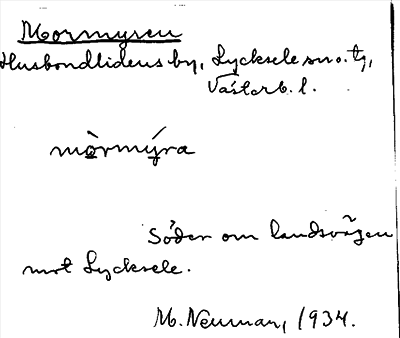 Mormyren
Husbondlidens by, Lycksele sn o. tg,
Västerb. l.
mòrmýra
Söder om landsvägen
mot Lycksele.
M. Neuman, 1934.